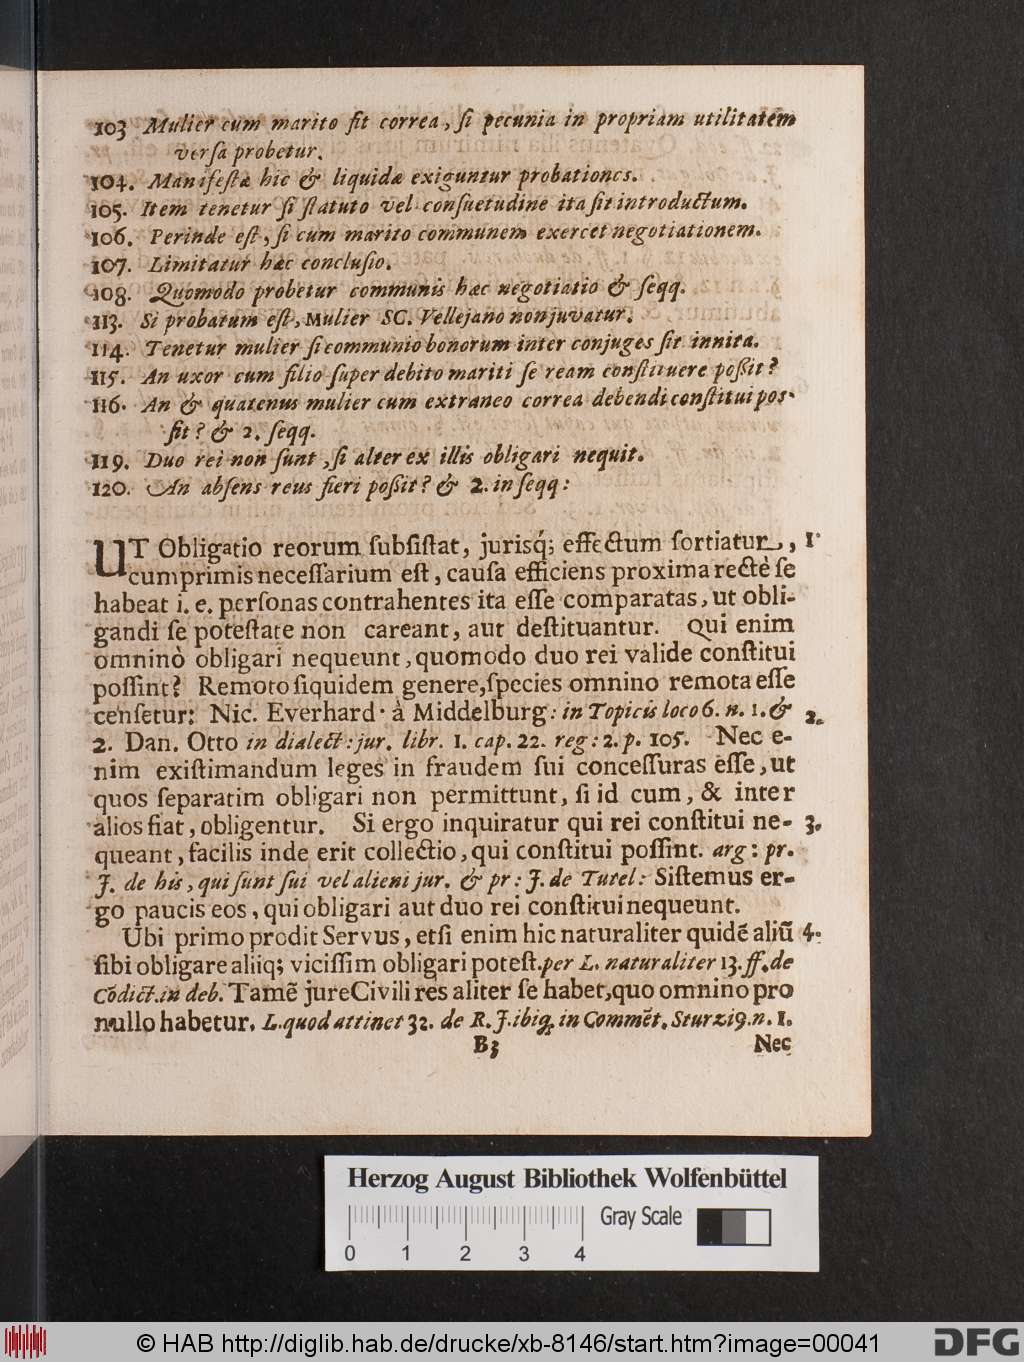 103 Mulier cum marito fit correa, ſi pecunia in propriam utilitatem
verſa probetur.
104. Manifeſtæ hic & liquidæ exiguntur probationes.
105. Item tenetur ſi ſtatuto vel conſuetudine ita ſit introductum.
106. Perinde eſt, ſi cum marito communem exercet negotiationem.
107. Limitatur hæc concluſio.
108. Quomodo probetur communis hæc negotiatio & ſeqq.
113. Si probatum eſt, Mulier SC. Vellejano non juvatur.
114. Tenetur mulier ſi communio bonorum inter conjuges ſit innita.
115. An uxor cum filio ſuper debito mariti ſe ream conſtituere poßit?
116. An & quatenus mulier cum extraneo correa debendi conſtitui pos-
ſit? & 2. ſeqq.
119. Duo rei non ſunt, ſi alter ex illis obligari nequit.
120. An abſens reus fieri poßit? & 2. in ſeqq:
UT Obligatio reorum ſubſiſtat, jurisq́; effectum ſortiatur, 1
cumprimis neceſſarium eſt, cauſa efficiens proxima rectè ſe
habeat i. e. perſonas contrahentes ita eſſe comparatas, ut obli-
gandi ſe poteſtate non careant, aut deſtituantur. Qui enim
omninò obligari nequeunt, quomodo duo rei valide conſtitui
poſſint? Remoto ſiquidem genere, ſpecies omnino remota eſſe
cenſetur: Nic. Everhard. à Middelburg: in Topicis loco 6. n. 1. & 2.
2. Dan. Otto in dialect: jur. libr. 1. cap. 22. reg: 2. p. 105. Nec e-
nim exiſtimandum leges in fraudem ſui conceſſuras eſſe, ut
quos ſeparatim obligari non permittunt, ſi id cum, & inter
alios fiat, obligentur. Si ergo inquiratur qui rei conſtitui ne- 3.
queant, facilis inde erit collectio, qui conſtitui poſſint. arg: pr.
J. de his, qui ſunt ſui vel alieni jur. & pr: J. de Tutel: Siſtemus er-
go paucis eos, qui obligari aut duo rei conſtitui nequeunt.
Ubi primo prodit Servus, etſi enim hic naturaliter quidē aliū 4.
ſibi obligare aliiq; viciſſim obligari poteſt. per L. naturaliter 13. ff. de
Cōdict. in deb. Tamē jure Civili res aliter ſe habet, quo omnino pro
nullo habetur. L. quod attinet 32. de R. J. ibiq; in Commēt. Sturzi 9. n. 1.
B3 Nec
Herzog August Bibliothek Wolfenbüttel
Gray Scale
0 1 2 3 4
© HAB http://diglib.hab.de/drucke/xb-8146/start.htm?image=00041
DFG